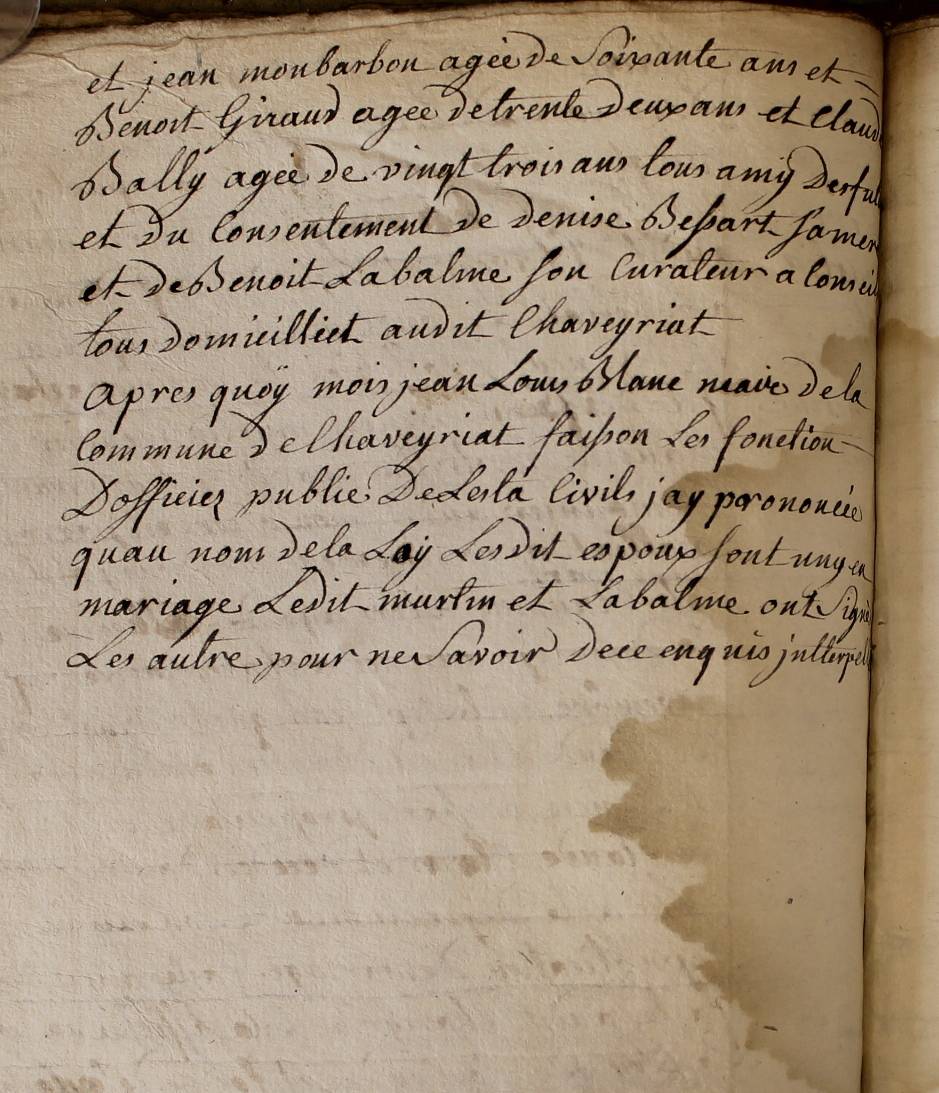 et jean monbarbon ageè de Soixante ans et
Benoit Giraud ageè de trente deux ans et Claud
Bally ageè de vingt trois ans tous amÿ Desful
et du Consentement de denise Bessart Samer
et de Benoit Labalme son Curateur a Conseil
tous domicilliet audit Chaveyriat
apres quoÿ mois jean Louis Blanc maire de la
Commune de Chaveyriat faisson Les fonction
Dofficiez public De Lesta Civils jay prononcée
quau nom de la Loÿ Lesdit espoux sont uny en
mariage Ledit murtin et Labalme ont Signé
Les autre pour ne Savoir Dece enquis jntterpell